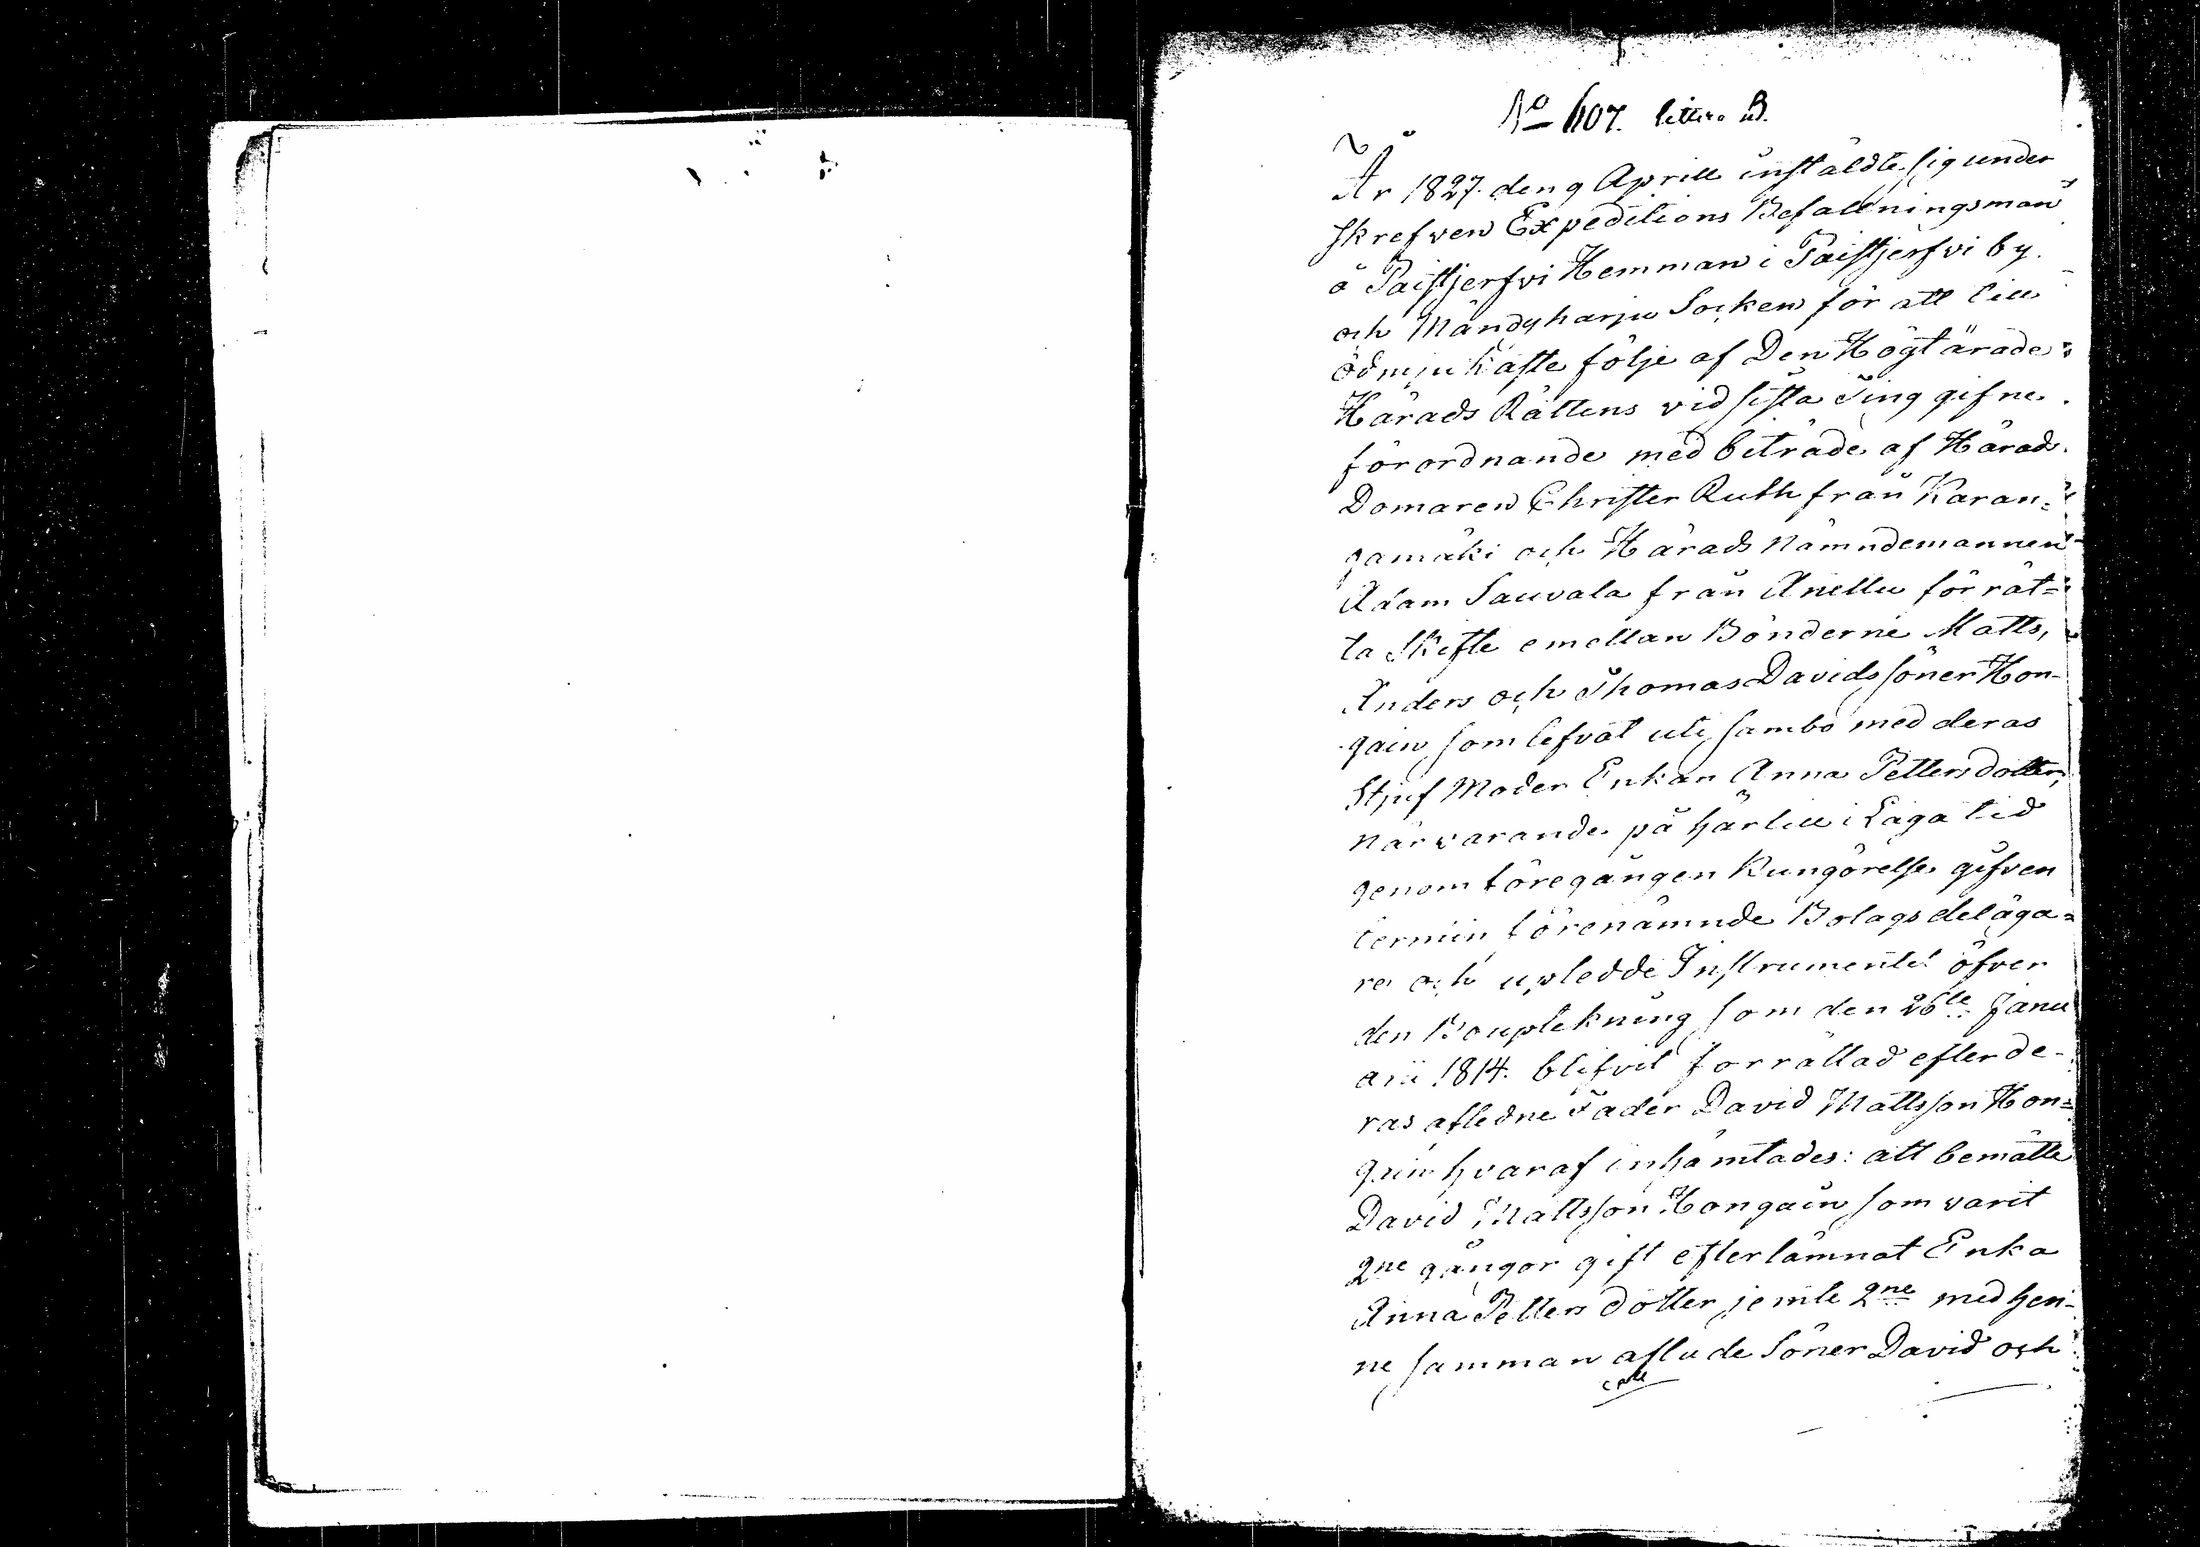 No 607. littera B.
År 1827. den 9 Aprill instäldte sig under
skrefven Expeditions Befallningsman
å Paistjerfvi Hemman i Paistjerfvi by
och Mändyharju Socken för att till
ödmjukaste följe af Den Högtärade
Härads Rättens vid sista Ting gifne
förordnande med biträde af Härads
Domaren Christer Ruth från Karan=
gamäki och Härads Nämndemannen
Adam Sauvala från Anellu förrät=
ta Skifte emellan Bönderne Matts,
Anders och Thomas Davidssöner Hon-
gain som lefvat uti sambo med deras
Stjuf Moder Enkan Anna Pettersdotter,
närvarande på härtill i Laga tid
genom föregången Kungörelse gifven
termin förenämnde Bolags deläga=
re och upledde Instrumentet öfver
den Bouptekning som den 26te Janu
arii 1814. blifvit förrättad efter de-
ras afledne Fader David Mattsson Hon=
gain hvaraf inhämtades: att bemälte
David Mattsson Hongain som varit
2ne gångor gift efterlämnat Enka
Anna Petters dotter jemte 2ne med hen-
ne samman aflade Söner David och